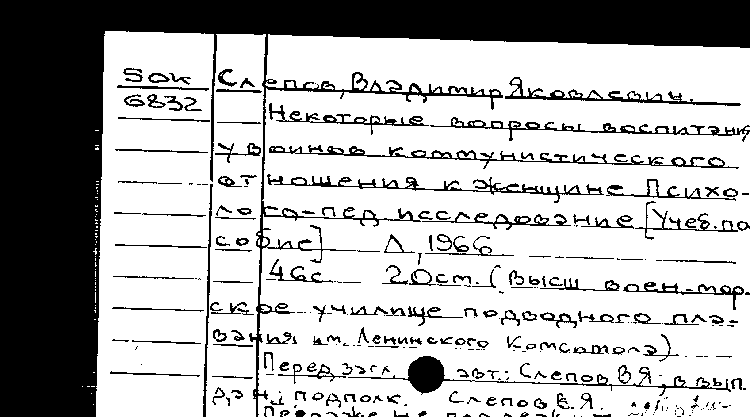 50к Слепов, Владимир Яковлевич.
6832 Некоторые вопросы воспитания
у воинов коммунистического
отношения к женщине Психо-
лого-пед исследование [Учеб. по
собие] Л, 1966
46с 20см. (Высш воен-мор.
ское училище подводного пла-
вания им. Ленинского Комсомола)
Перед загл. авт.: Слепов В.Я., в вып.
дан.: подполк. Слепов В.Я.